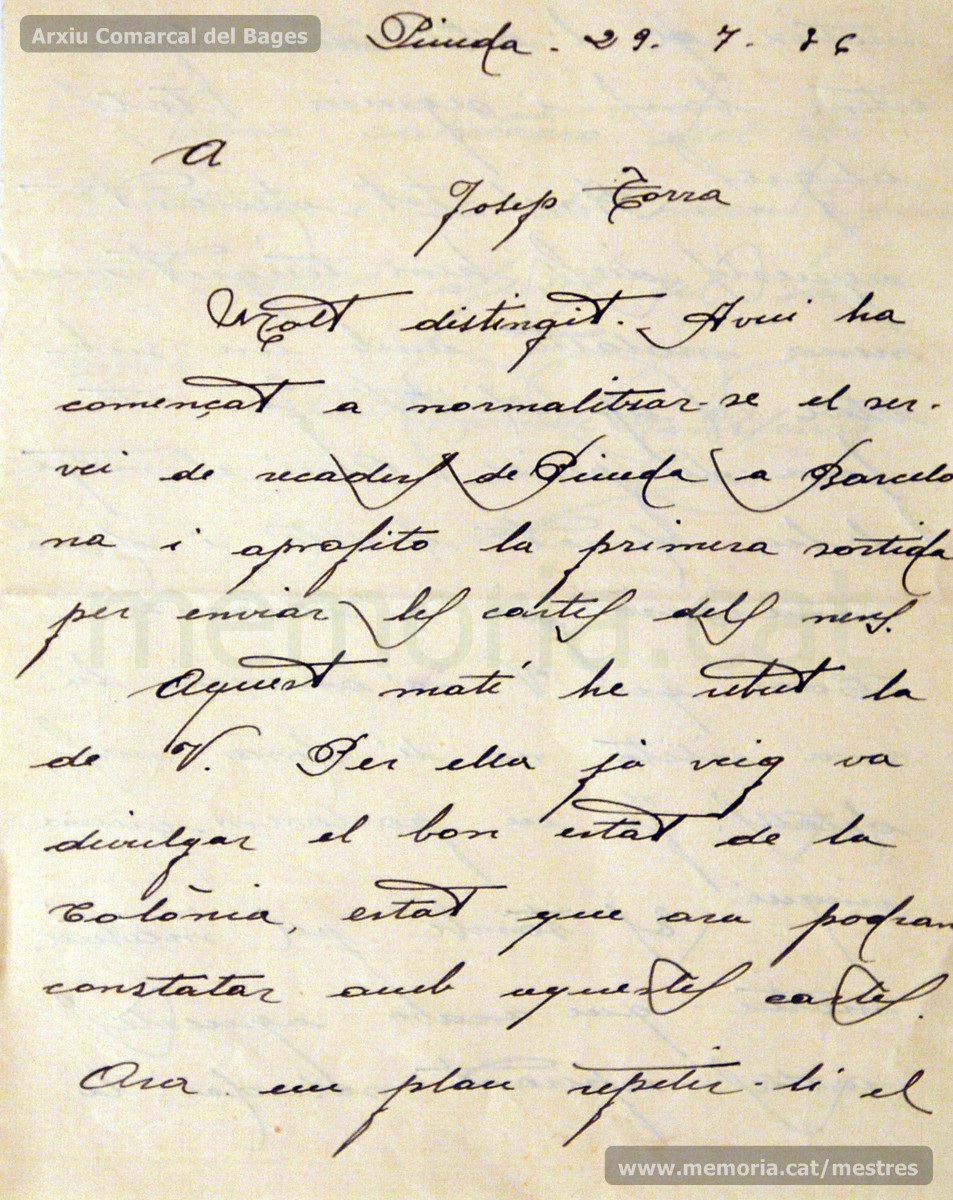 Arxiu Comarcal del Bages
Pineda - 29. 7. 36
A
Josep Torra
Molt distingit. Avui ha
començat a normalitzar-se el ser-
vei de recaders de Pineda a Barcelo
na i aprofito la primera sortida
per enviar les cartes dels nens.
Aquest matí he rebut la
de V. Per ella ja veig va
divulgar el bon estat de la
Colònia, estat que ara podran
constatar amb aquestes cartes.
Ara em plau repetir-li el
memoria.cat
www.memoria.cat/mestres